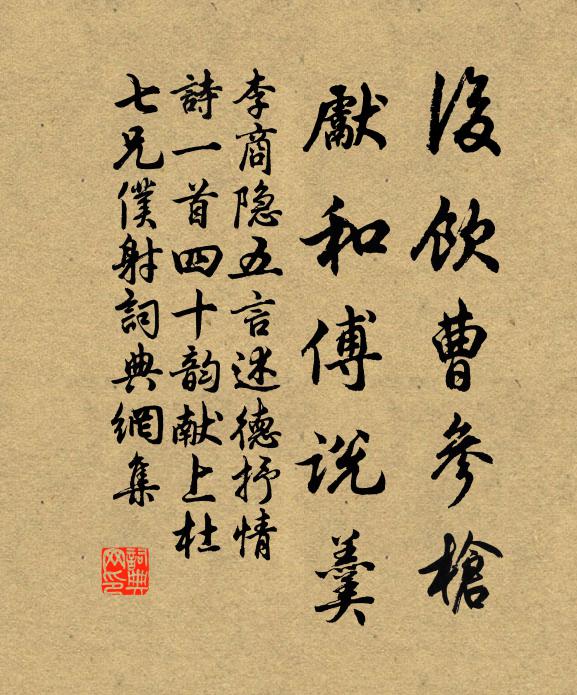 後飲曹參槍
獻和傅説羹
李商隐五言述德抒情
詩一首四十韵献上杜
七兄僕射詞典網集
詞典网印